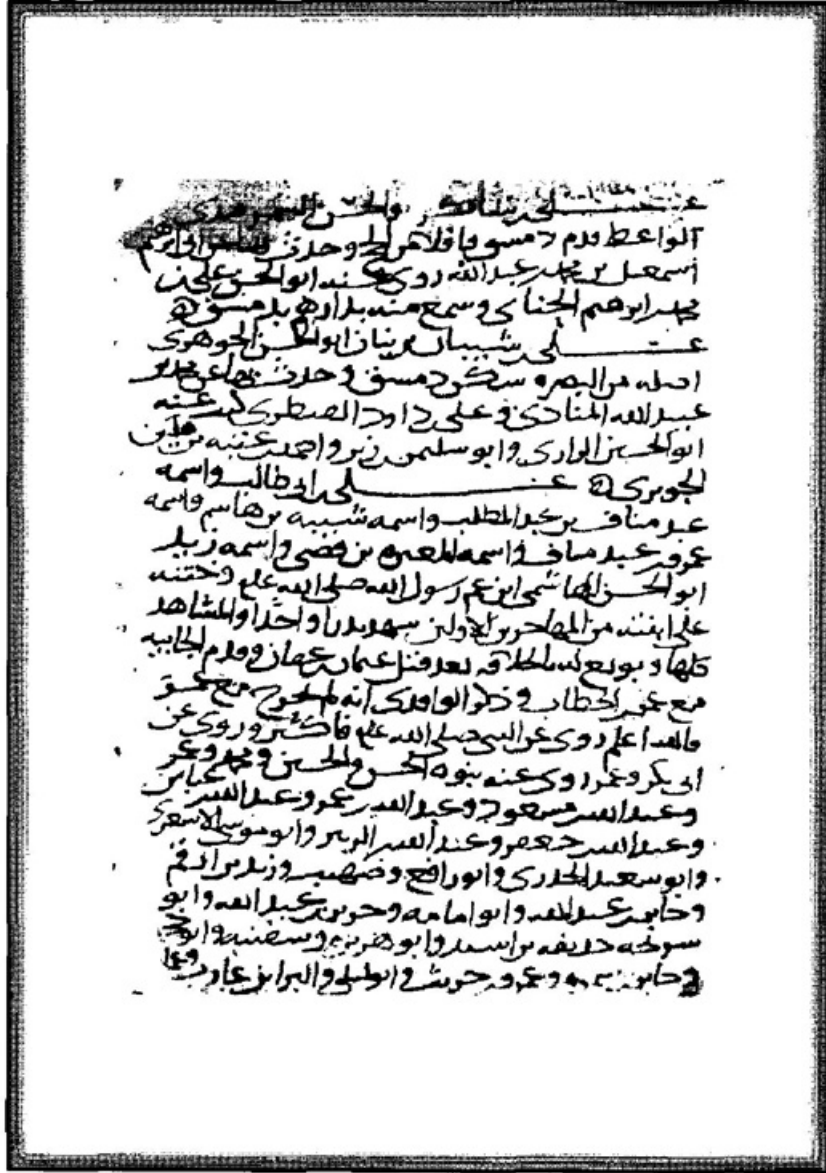 علي بن شاكر أبو الحسن
الواعظ قدم دمسق وحدث
اسمعيل بن محمد بن عبد الله روى عنه ابو الحسن علي بن
محمد بن ابرهيم الحناى وسمع منه بداره بدمسق
علي بن شيبان بن بنان ابو الحسن الجوهرى
اصله من البصره سكن دمسق وحدث بها عن محمد بن
عبيد الله المنادى وعلى بن داود القنطرى كتب عنه
ابو الحسين الرازى وابو سليمن بن زبر واحمد بن عتبه بن مكين
الجوبرى علي بن ابى طالب واسمه
عبد مناف بن عبد المطلب واسمه شيبه بن هاسم واسمه
عمرو بن عبد مناف واسمه المغيره بن قصى واسمه زيد
ابو الحسن الهاشمى ابن عم رسول الله صلى الله عليه وختنه
على ابنته من المهاجرين الاولين سهد بدرا واحدا والمشاهد
كلها وبويع له بالخلافه بعد قتل عثمان بن عفان وقدم الجابيه
مع عمر بن الخطاب وذكر الواقدى انه لم يخرج مع عمر
فالله اعلم روى عن النبى صلى الله عليه فاكثر وروى عن
ابى بكر وعمر روى عنه بنوه الحسن والحسين ومحمد وعمر
وعبد الله بن مسعود وعبد الله بن عمر وعبد الله بن عباس
وعبد الله بن جعفر وعبد الله بن الزبير وابو موسى الاسعرى
وابو سعيد الخدرى وابو رافع وصهيب وزيد بن ارقم
وجابر بن عبد الله وابو امامه وجرير بن عبد الله وابو
سريحه حذيفه بن اسيد وابو هريره وسفينه وابو
وجابر بن سمره وعمرو بن حريث وابو ليلى والبرا بن عازب